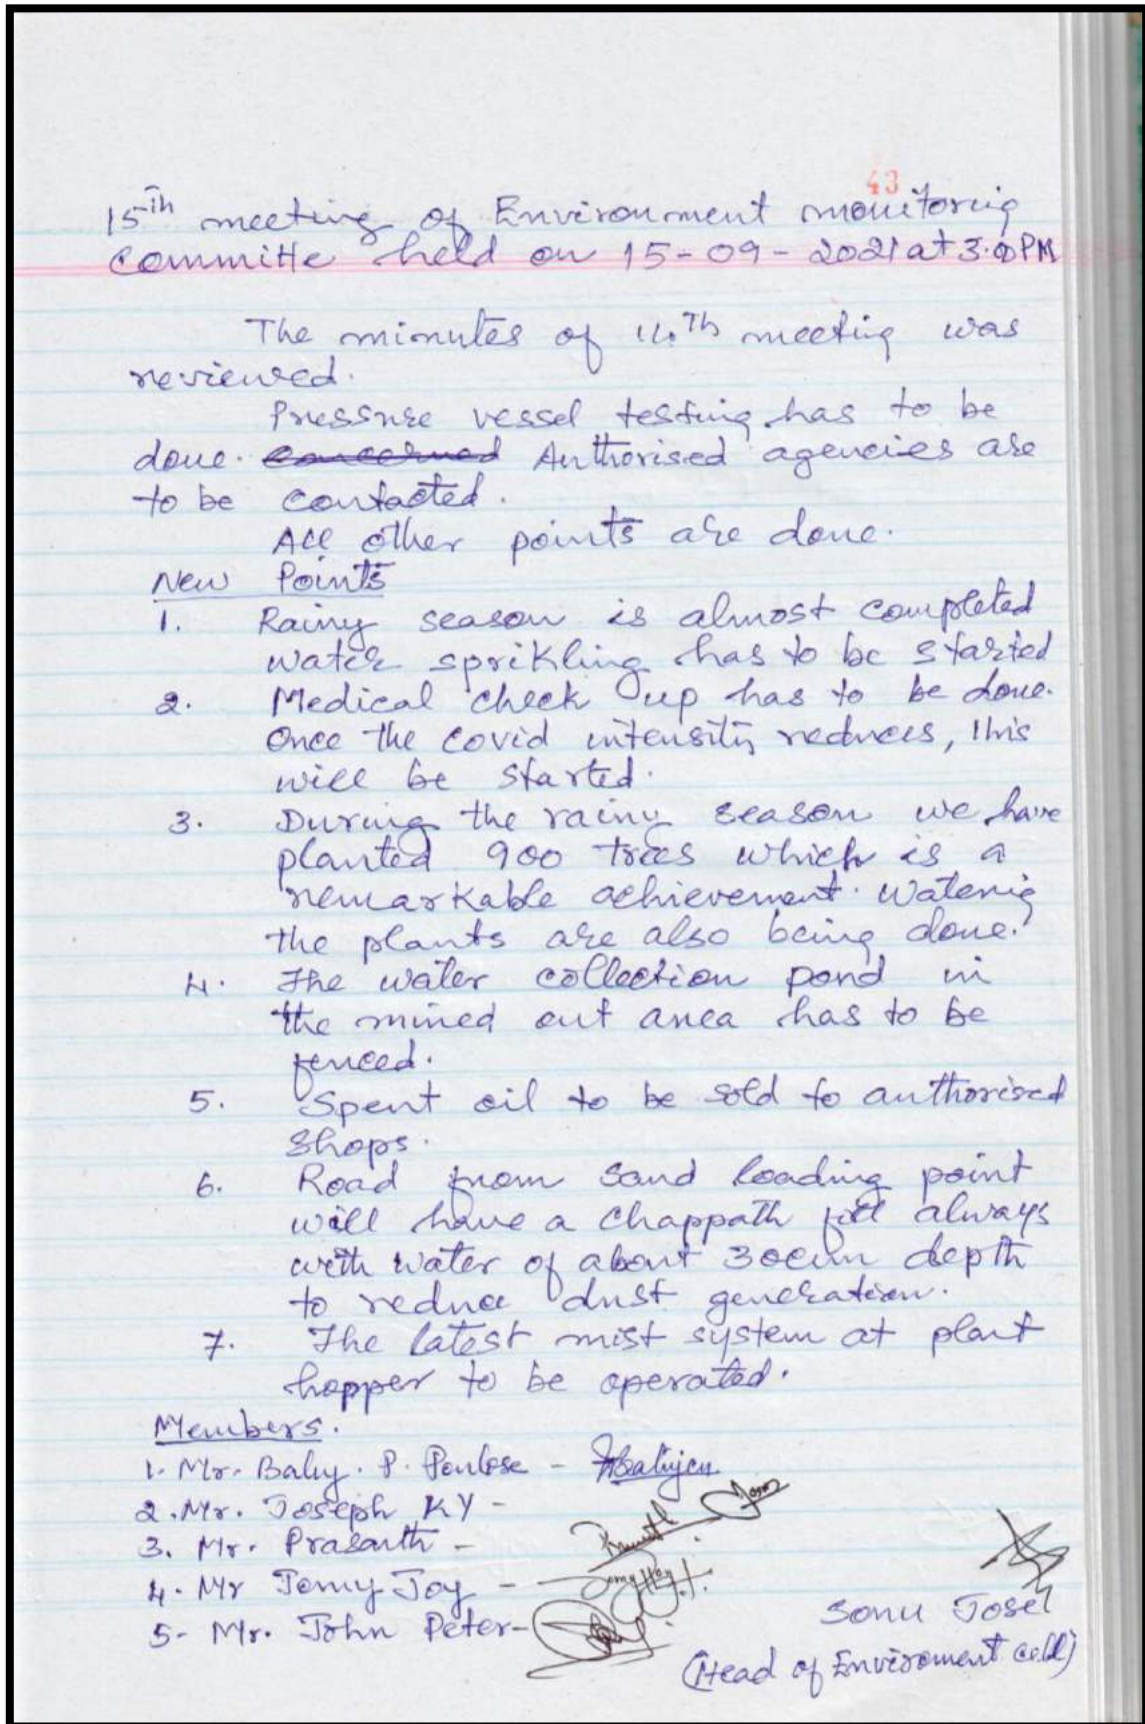 43
15th meeting of Environment monitoring
Committe held on 15-09-2021 at 3.0 PM
The minutes of 14th meeting was
reviewed.
Pressure vessel testing has to be
done. concerned Authorised agencies are
to be contacted.
All other points are done.
New Points
1. Rainy season is almost completed
water sprikling has to be started
2. Medical check up has to be done.
Once the covid intensity reduces, this
will be started.
3. During the rainy season we have
planted 900 trees which is a
remarkable achievement. Watering
the plants are also being done.
4. The water collection pond in
the mined out area has to be
fenced.
5. Spent oil to be sold to authorised
shops.
6. Road from sand loading point
will have a chappath fill always
with water of about 30cm depth
to reduce dust generation.
7. The latest mist system at plant
hopper to be operated.
Members.
1. Mr. Baby. P. Poulose -
2. Mr. Joseph KY -
3. Mr. Prasanth -
4. Mr Jomy Joy -
5- Mr. John Peter-
Sonu Jose
(Head of Enviroment cell)